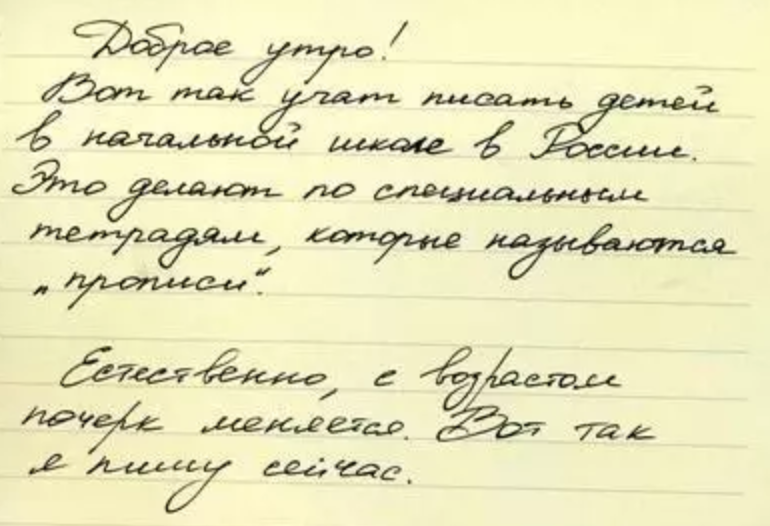 Доброе утро!
Вот так учат писать детей
в начальной школе в России.
Это делают по специальным
тетрадям, которые называются
„прописи“.
Естественно, с возрастом
почерк меняется. Вот так
я пишу сейчас.